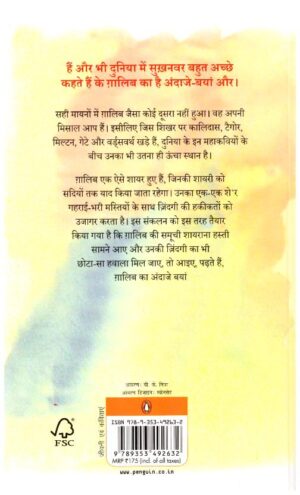 हैं और भी दुनिया में सुख़नवर बहुत अच्छे
कहते हैं के ग़ालिब का है अंदाजे-बयां और।
सही मायनों में ग़ालिब जैसा कोई दूसरा नहीं हुआ। वह अपनी
मिसाल आप हैं। इसीलिए जिस शिखर पर कालिदास, टैगोर,
मिल्टन, गेटे और वर्ड्सवर्थ खड़े हैं, दुनिया के इन महाकवियों के
बीच उनका भी उतना ही ऊंचा स्थान है।
ग़ालिब एक ऐसे शायर हुए हैं, जिनकी शायरी को
सदियों तक याद किया जाता रहेगा। उनका एक-एक शे'र
गहराई-भरी मस्तियों के साथ ज़िंदगी की हकीकतों को
उजागर करता है। इस संकलन को इस तरह तैयार
किया गया है कि ग़ालिब की समूची शायराना हस्ती
सामने आए और उनकी ज़िंदगी का भी
छोटा-सा हवाला मिल जाए, तो आइए, पढ़ते हैं,
ग़ालिब का अंदाजे बयां
FSC
जीवनी एवं कविताएं
ISBN 978-9-353-49263-2
9 789353 492632
MRP ₹175 (incl. of all taxes)
www.penguin.co.in